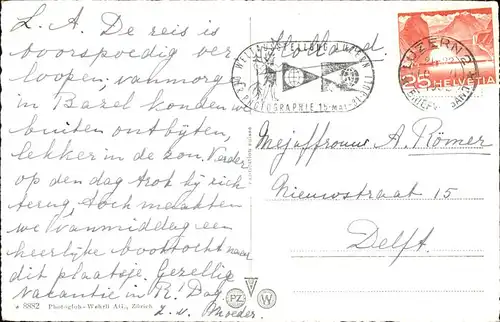 L. A. De reis is
voorspoedig ver
loopen; vanmorgen
in Bazel konden we
buiten ontbijten,
lekker in de zon. Verder
op den dag trok hij zich
terug, toch maakten
we vanmiddag een
heerlijke boottocht naar
dit plaatsje. Gezellig
vacantie in R! Dag
t. v. Moeder.
Holland
WELTAUSSTELLUNG LUZERN
PHOTOGRAPHIE 15. MAI - 31. JULI
LUZERN 2
25 HELVETIA
Mejuffrouw A. Römer
Nieuwstraat 15
Delft.
8882 Photoglob-Wehrli AG., Zürich
PZ W